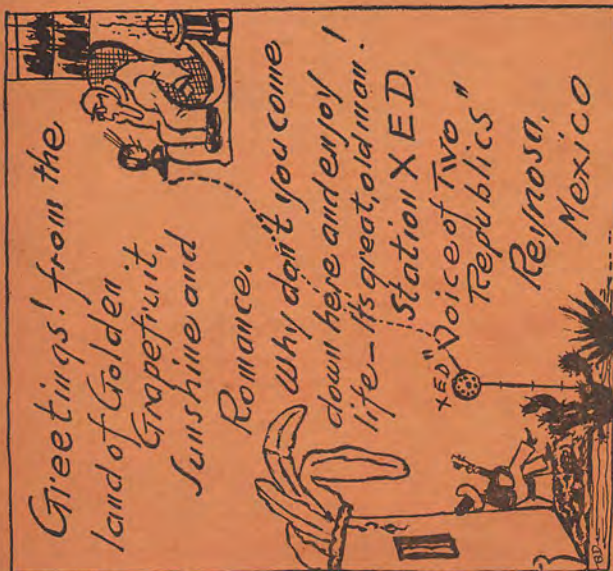 Greetings! from the
land of Golden
Grapefruit,
Sunshine and
Romance.
Why don't you come
down here and enjoy
life-Its great, old man!
Station XED.
"Voice of Two
Republics"
Reynosa,
Mexico
XED
BD